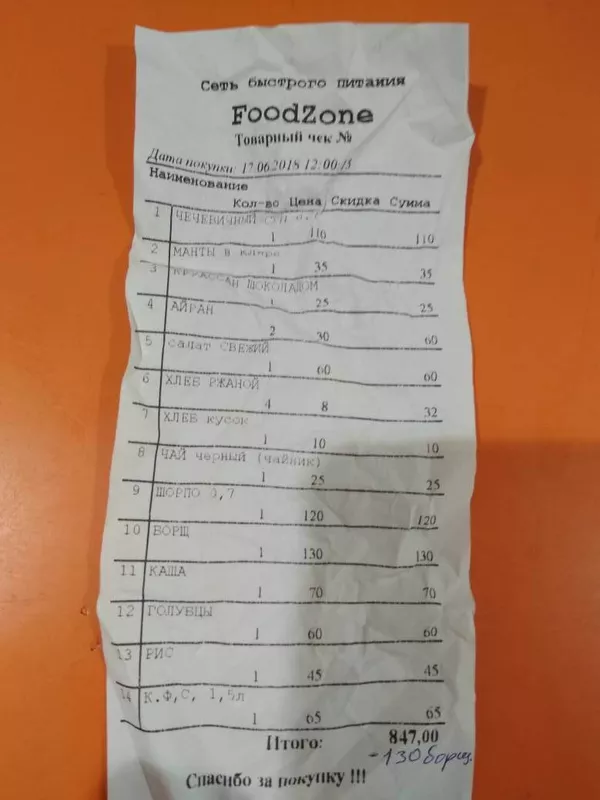 Сеть быстрого питания
FoodZone
Товарный чек №
Дата покупки: 17.06.2018 12:00:
Наименование
Кол-во Цена Скидка Сумма
1 ЧЕЧЕВИЧНЫЙ
1 110 110
2 МАНТЫ В
1 35 35
3 КРУАССАН ШОКОЛАДОМ
1 25 25
4 АЙРАН
2 30 60
5 салат СВЕЖИЙ
1 60 60
6 ХЛЕБ РЖАНОЙ
4 8 32
7 ХЛЕБ кусок
1 10 10
8 ЧАЙ черный (чайник)
1 25 25
9 ШОРПО 0,7
1 120 120
10 БОРЩ
1 130 130
11 КАША
1 70 70
12 ГОЛУБЦЫ
1 60 60
13 РИС
1 45 45
14 К.Ф,С, 1,5л
1 65 65
Итого: 847,00
-130 борщ.
Спасибо за покупку !!!